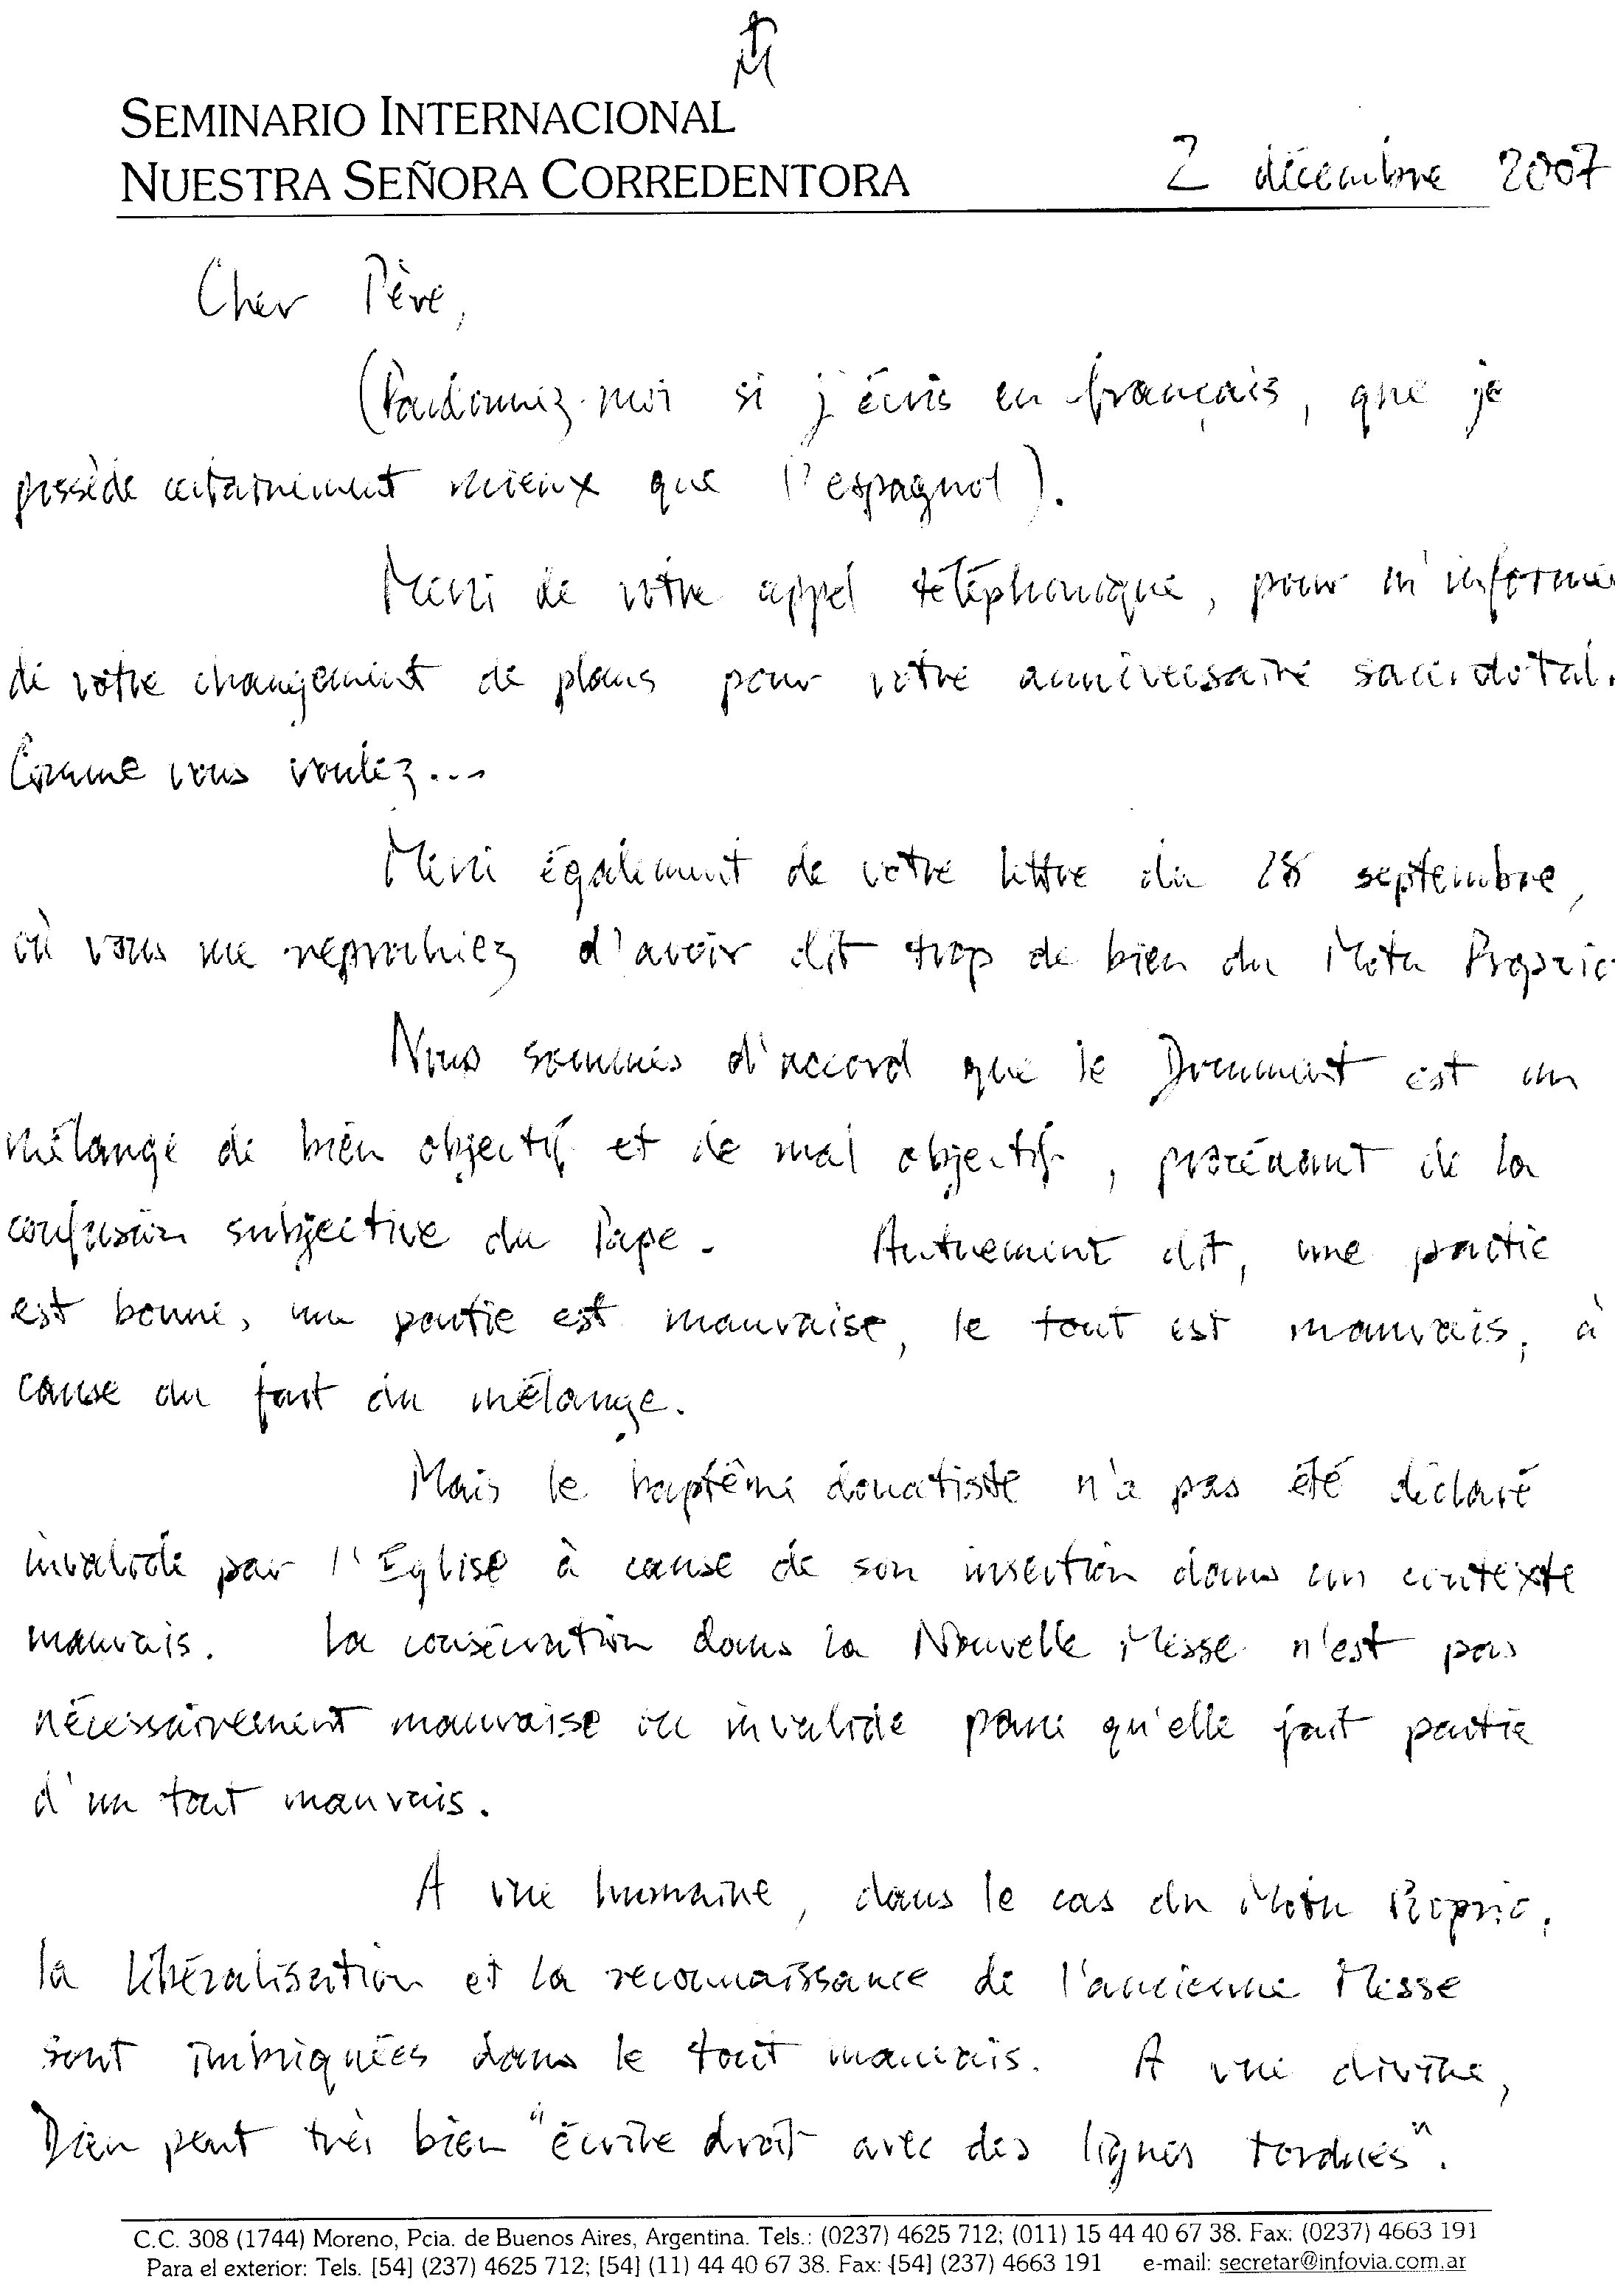 SEMINARIO INTERNACIONAL
NUESTRA SEÑORA CORREDENTORA
2 décembre 2007
Cher Père,
(Pardonnez-moi si j'écris en français, que je
possède certainement mieux que l'espagnol).
Merci de votre appel téléphonique, pour m'informer
de votre changement de plans pour votre anniversaire sacerdotal.
Comme vous voulez...
Merci également de votre lettre du 28 septembre,
où vous me reprochiez d'avoir dit trop de bien du Motu Proprio
Nous sommes d'accord que le Document est un
mélange de bien objectif et de mal objectif, procédant de la
confusion subjective du Pape. Autrement dit, une partie
est bonne, une partie est mauvaise, le tout est mauvais, à
cause du fait du mélange.
Mais le baptême donatiste n'a pas été déclaré
invalide par l'Eglise à cause de son insertion dans un contexte
mauvais. La consécration dans la Nouvelle Messe n'est pas
nécessairement mauvaise ou invalide parce qu'elle fait partie
d'un tout mauvais.
A vue humaine, dans le cas du Motu Proprio,
la libéralisation et la reconnaissance de l'ancienne Messe
sont imbriquées dans le tout mauvais. A vue divine,
Dieu peut très bien "écrire droit avec des lignes tordues".
C.C. 308 (1744) Moreno, Pcia. de Buenos Aires, Argentina. Tels.: (0237) 4625 712; (011) 15 44 40 67 38. Fax: (0237) 4663 191
Para el exterior: Tels. [54] (237) 4625 712; [54] (11) 44 40 67 38. Fax: [54] (237) 4663 191 e-mail: secretar@infovia.com.ar